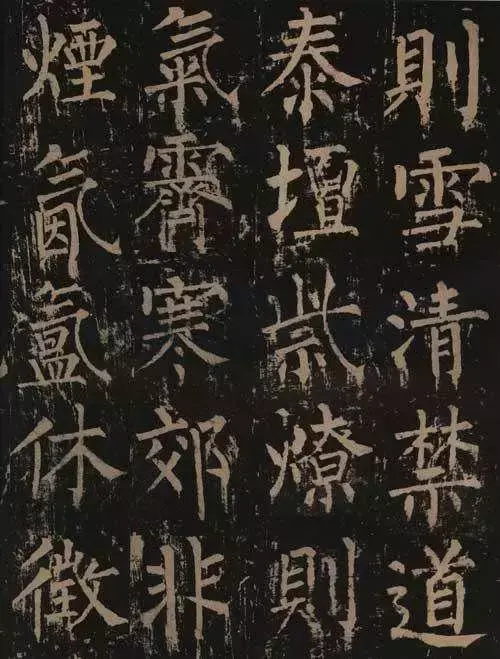 則雪清禁道
泰壇祡燎則
氣霽寒郊非
煙氤氳休徵